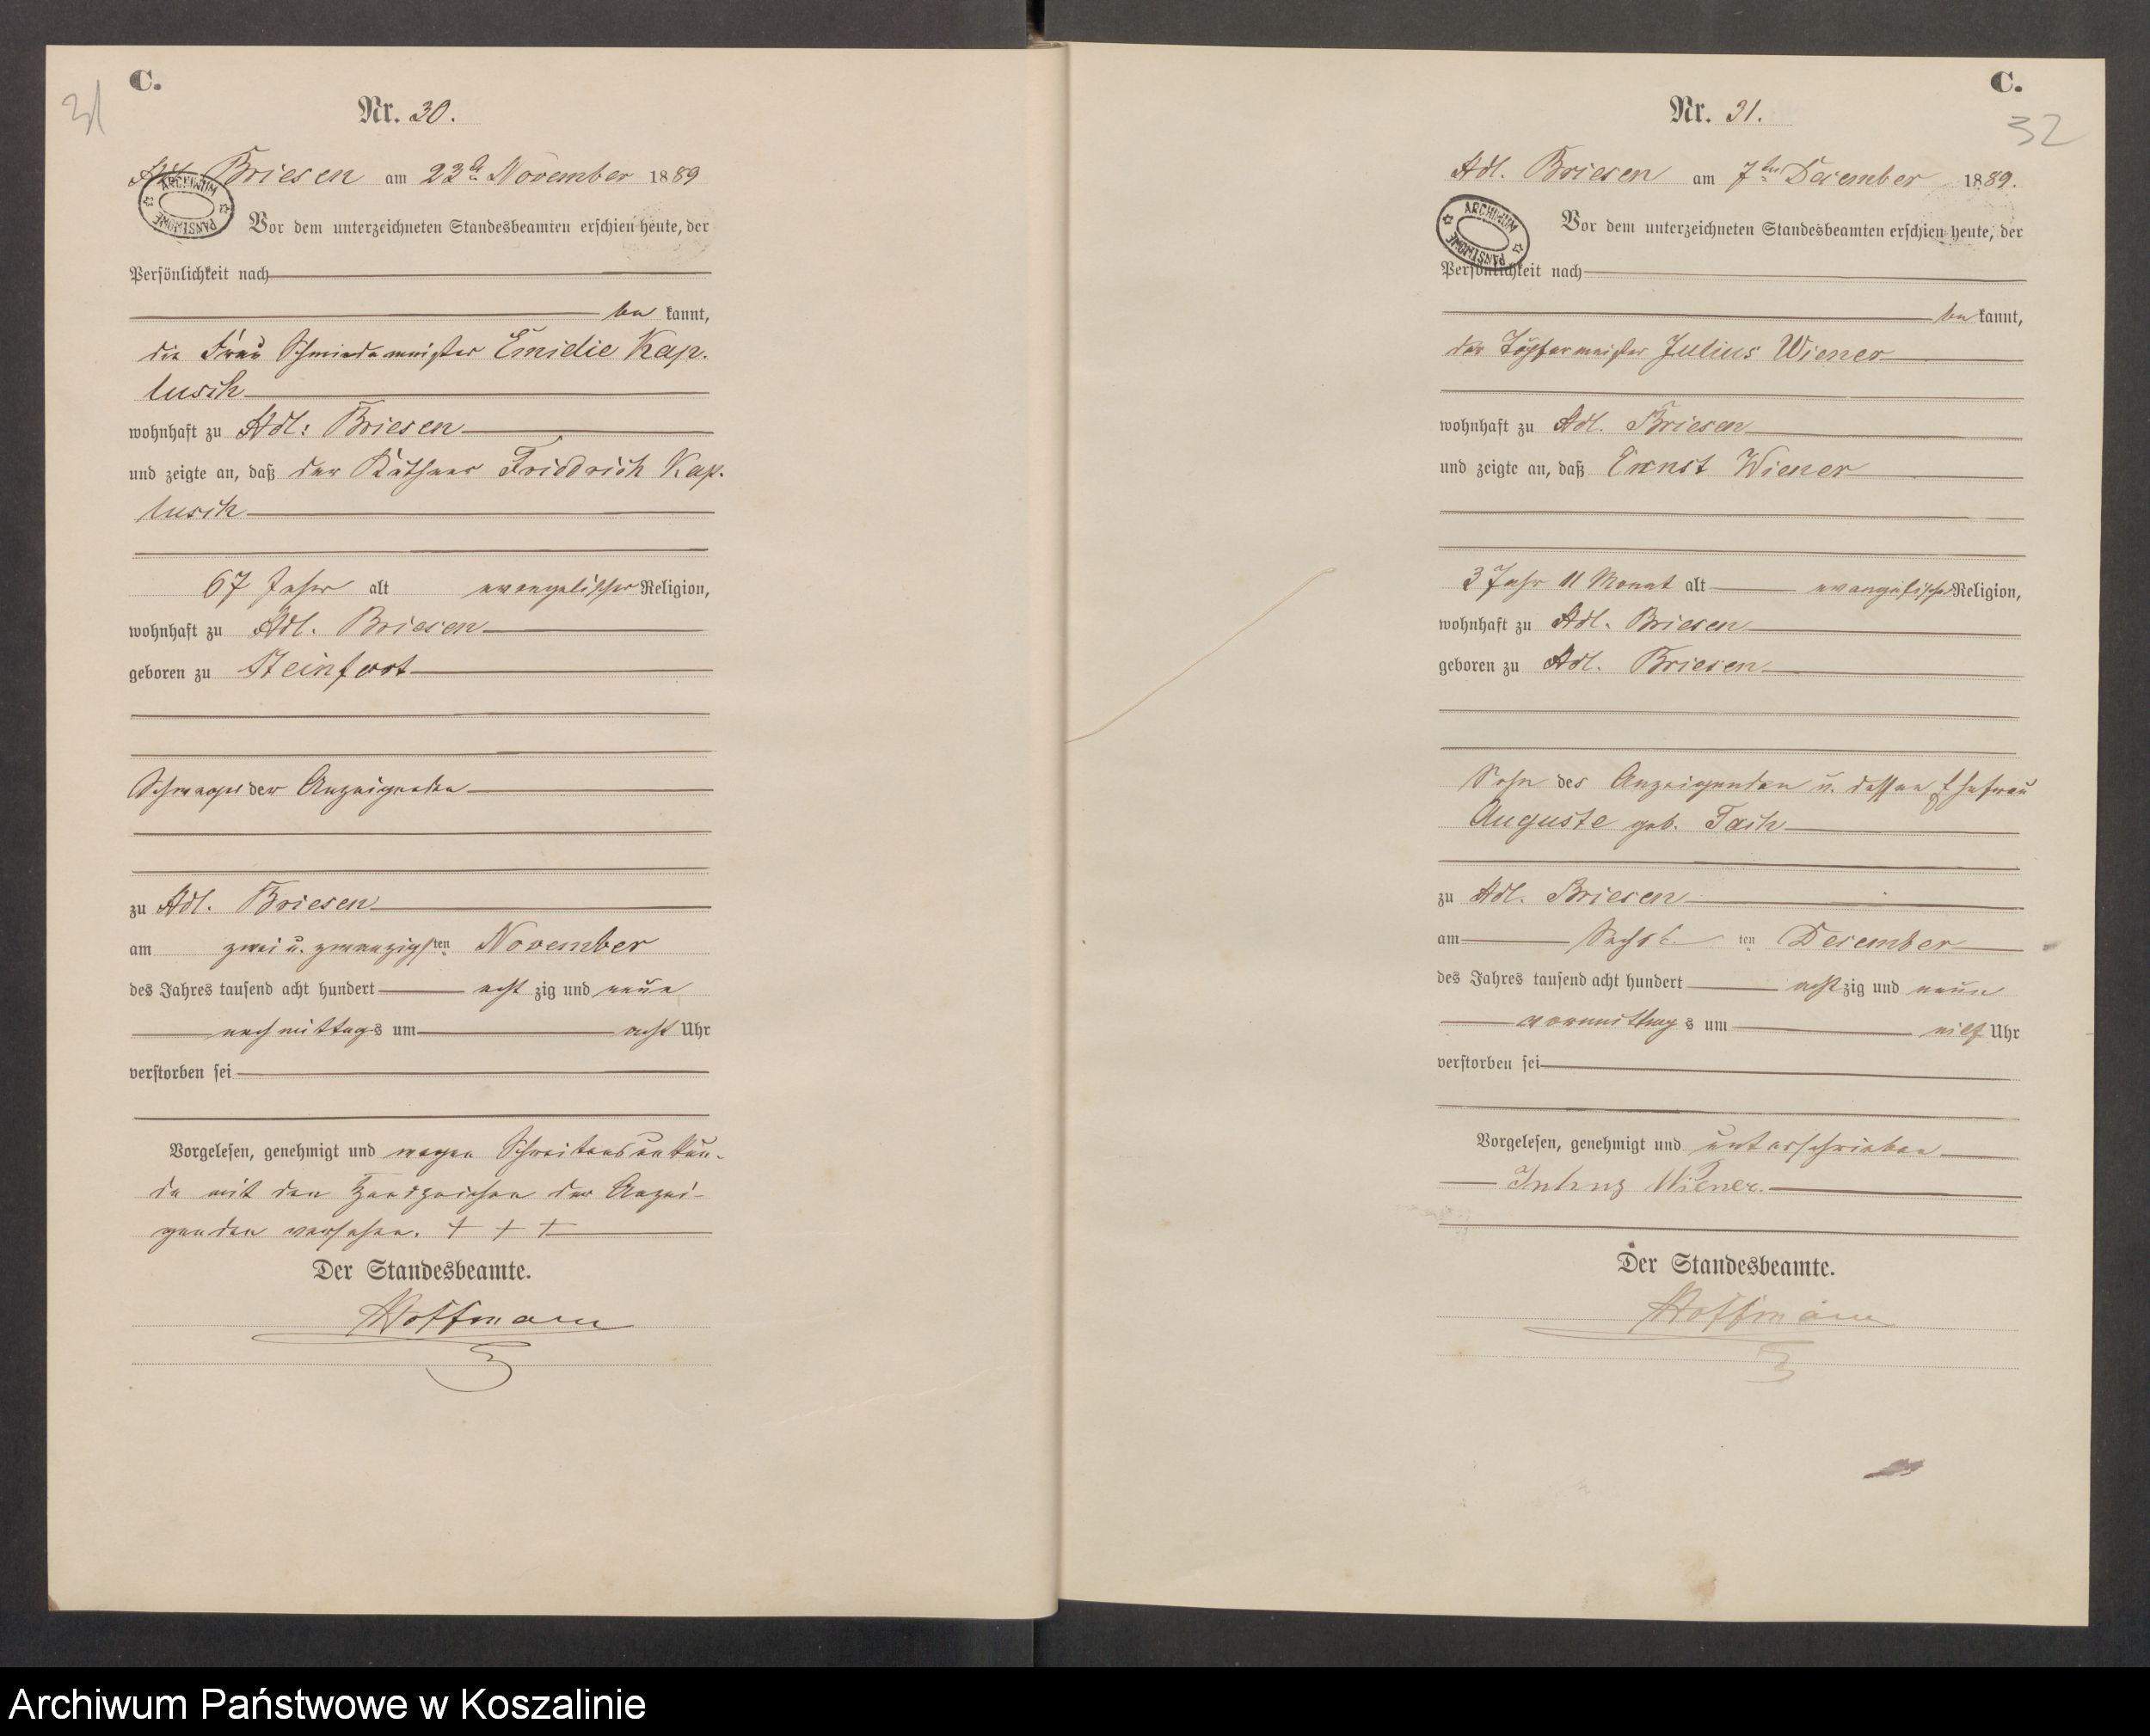 C.
31
Nr. 30.
Adl. Briesen am 23t November 1889
ARCHIWUM PAŃSTWOWE
Vor dem unterzeichneten Standesbeamten erschien heute, der
Persönlichkeit nach
be kannt,
die Frau Schmiedemeister Emidie Kap-
lusch
wohnhaft zu Adl: Briesen
und zeigte an, daß der Käthner Friedrich Kap-
lusch
67 Jahr alt evangelischer Religion,
wohnhaft zu Adl. Briesen
geboren zu Steinfort
der Anzeigenden
zu Adl. Briesen
am zwei u. zwanzigsten November
des Jahres tausend acht hundert acht zig und neun
nachmittags um acht Uhr
verstorben sei
Vorgelesen, genehmigt und wegen Schreibensunkun-
de mit den Handzeichen der Anzei-
genden versehen. + + +
Der Standesbeamte.
Hoffmann
C.
32
Nr. 31.
Adl. Briesen am 7ten December 1889.
ARCHIWUM PAŃSTWOWE
Vor dem unterzeichneten Standesbeamten erschien heute, der
Persönlichkeit nach
be kannt,
der Töpfermeister Julius Wiener
wohnhaft zu Adl. Briesen
und zeigte an, daß Ernst Wiener
3 Jahr 11 Monat alt evangelischer Religion,
wohnhaft zu Adl. Briesen
geboren zu Adl. Briesen
Sohn des Anzeigenden u. dessen Ehefrau
Auguste geb.
zu Adl. Briesen
am Sechs ten December
des Jahres tausend acht hundert acht zig und neun
vormittag s um eilf Uhr
verstorben sei
Vorgelesen, genehmigt und unterschrieben
Julius Wiener.
Der Standesbeamte.
Hoffmann
Archiwum Państwowe w Koszalinie